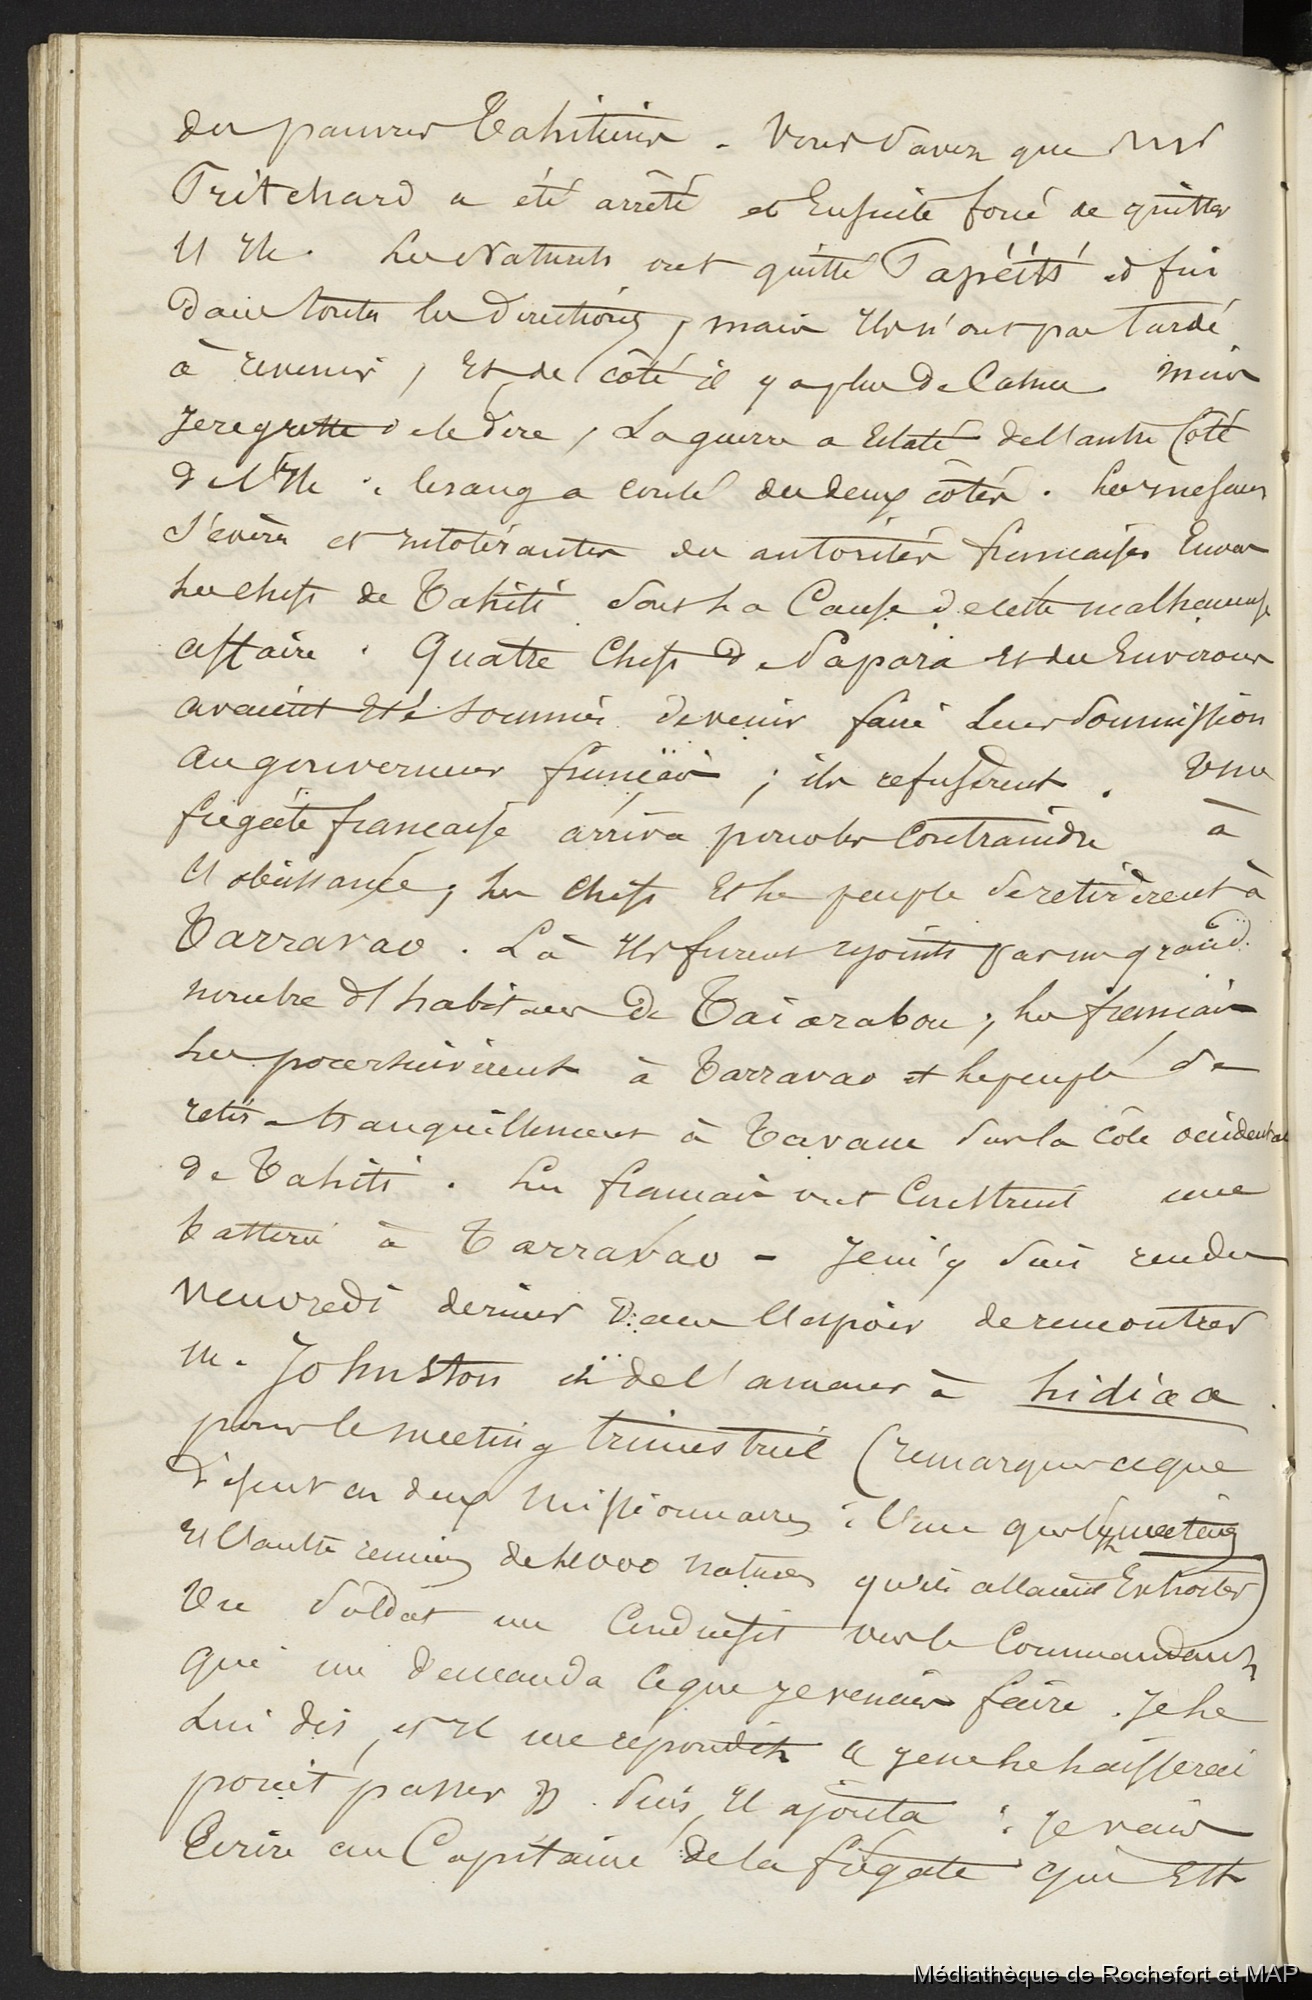 des pauvres Tahitiens. Vous savez que Mr
Pritchard a été arrêté et Ensuite forcé de quitter
l'Ile. Les Naturels ont quitté Papéiti et fui
dans toutes les directions, mais Ils n'ont pas tardé
à revenir, Et de côté il y a plus de Calme. Mais
Je regrette de le dire, La guerre a Eclaté de l'autre Côté
de l'Ile : le sang a coulé des deux côtés. Les mesures
sévères et intolérantes des autorités françaises Envers
les chefs de Tahiti sont la Cause de cette malheureuse
affaire. Quatre Chefs de Papara et des Environs
avaient Eté sommés de venir faire Leur Soumission
au gouverneur français ; ils refusèrent. Une
frégate française arriva pour les Contraindre à
l'obéissance, les Chefs Et le peuple se retirèrent à
Tarravao. Là Ils furent rejoints par un grand
nombre d'habitans de Taiarabou ; les français
les poursuivirent à Tarravao et le peuple se
retira tranquillement à Tavane sur la côte occidentale
de Tahiti. Les français ont Construit une
batterie à Tarravao - Je m'y suis rendu
Vendredi dernier dans l'espoir de rencontrer
M. Johnston de l'amener à hidiaa
pour le meeting trimestriel (remarquez ce que
disent ces deux Missionnaires : l'une
Et l'autre 1000 natures qu'ils allaient Exhorter)
Un Soldat me Conduisit vers le Commandant
qui me demanda ce que je venais faire. Je le
Lui dis, et Il me répondit « je ne te laisserai
point passer ». Puis, Il ajouta : je vais
Ecrire au Capitaine de la frégate qui Est
Médiathèque de Rochefort et MAP